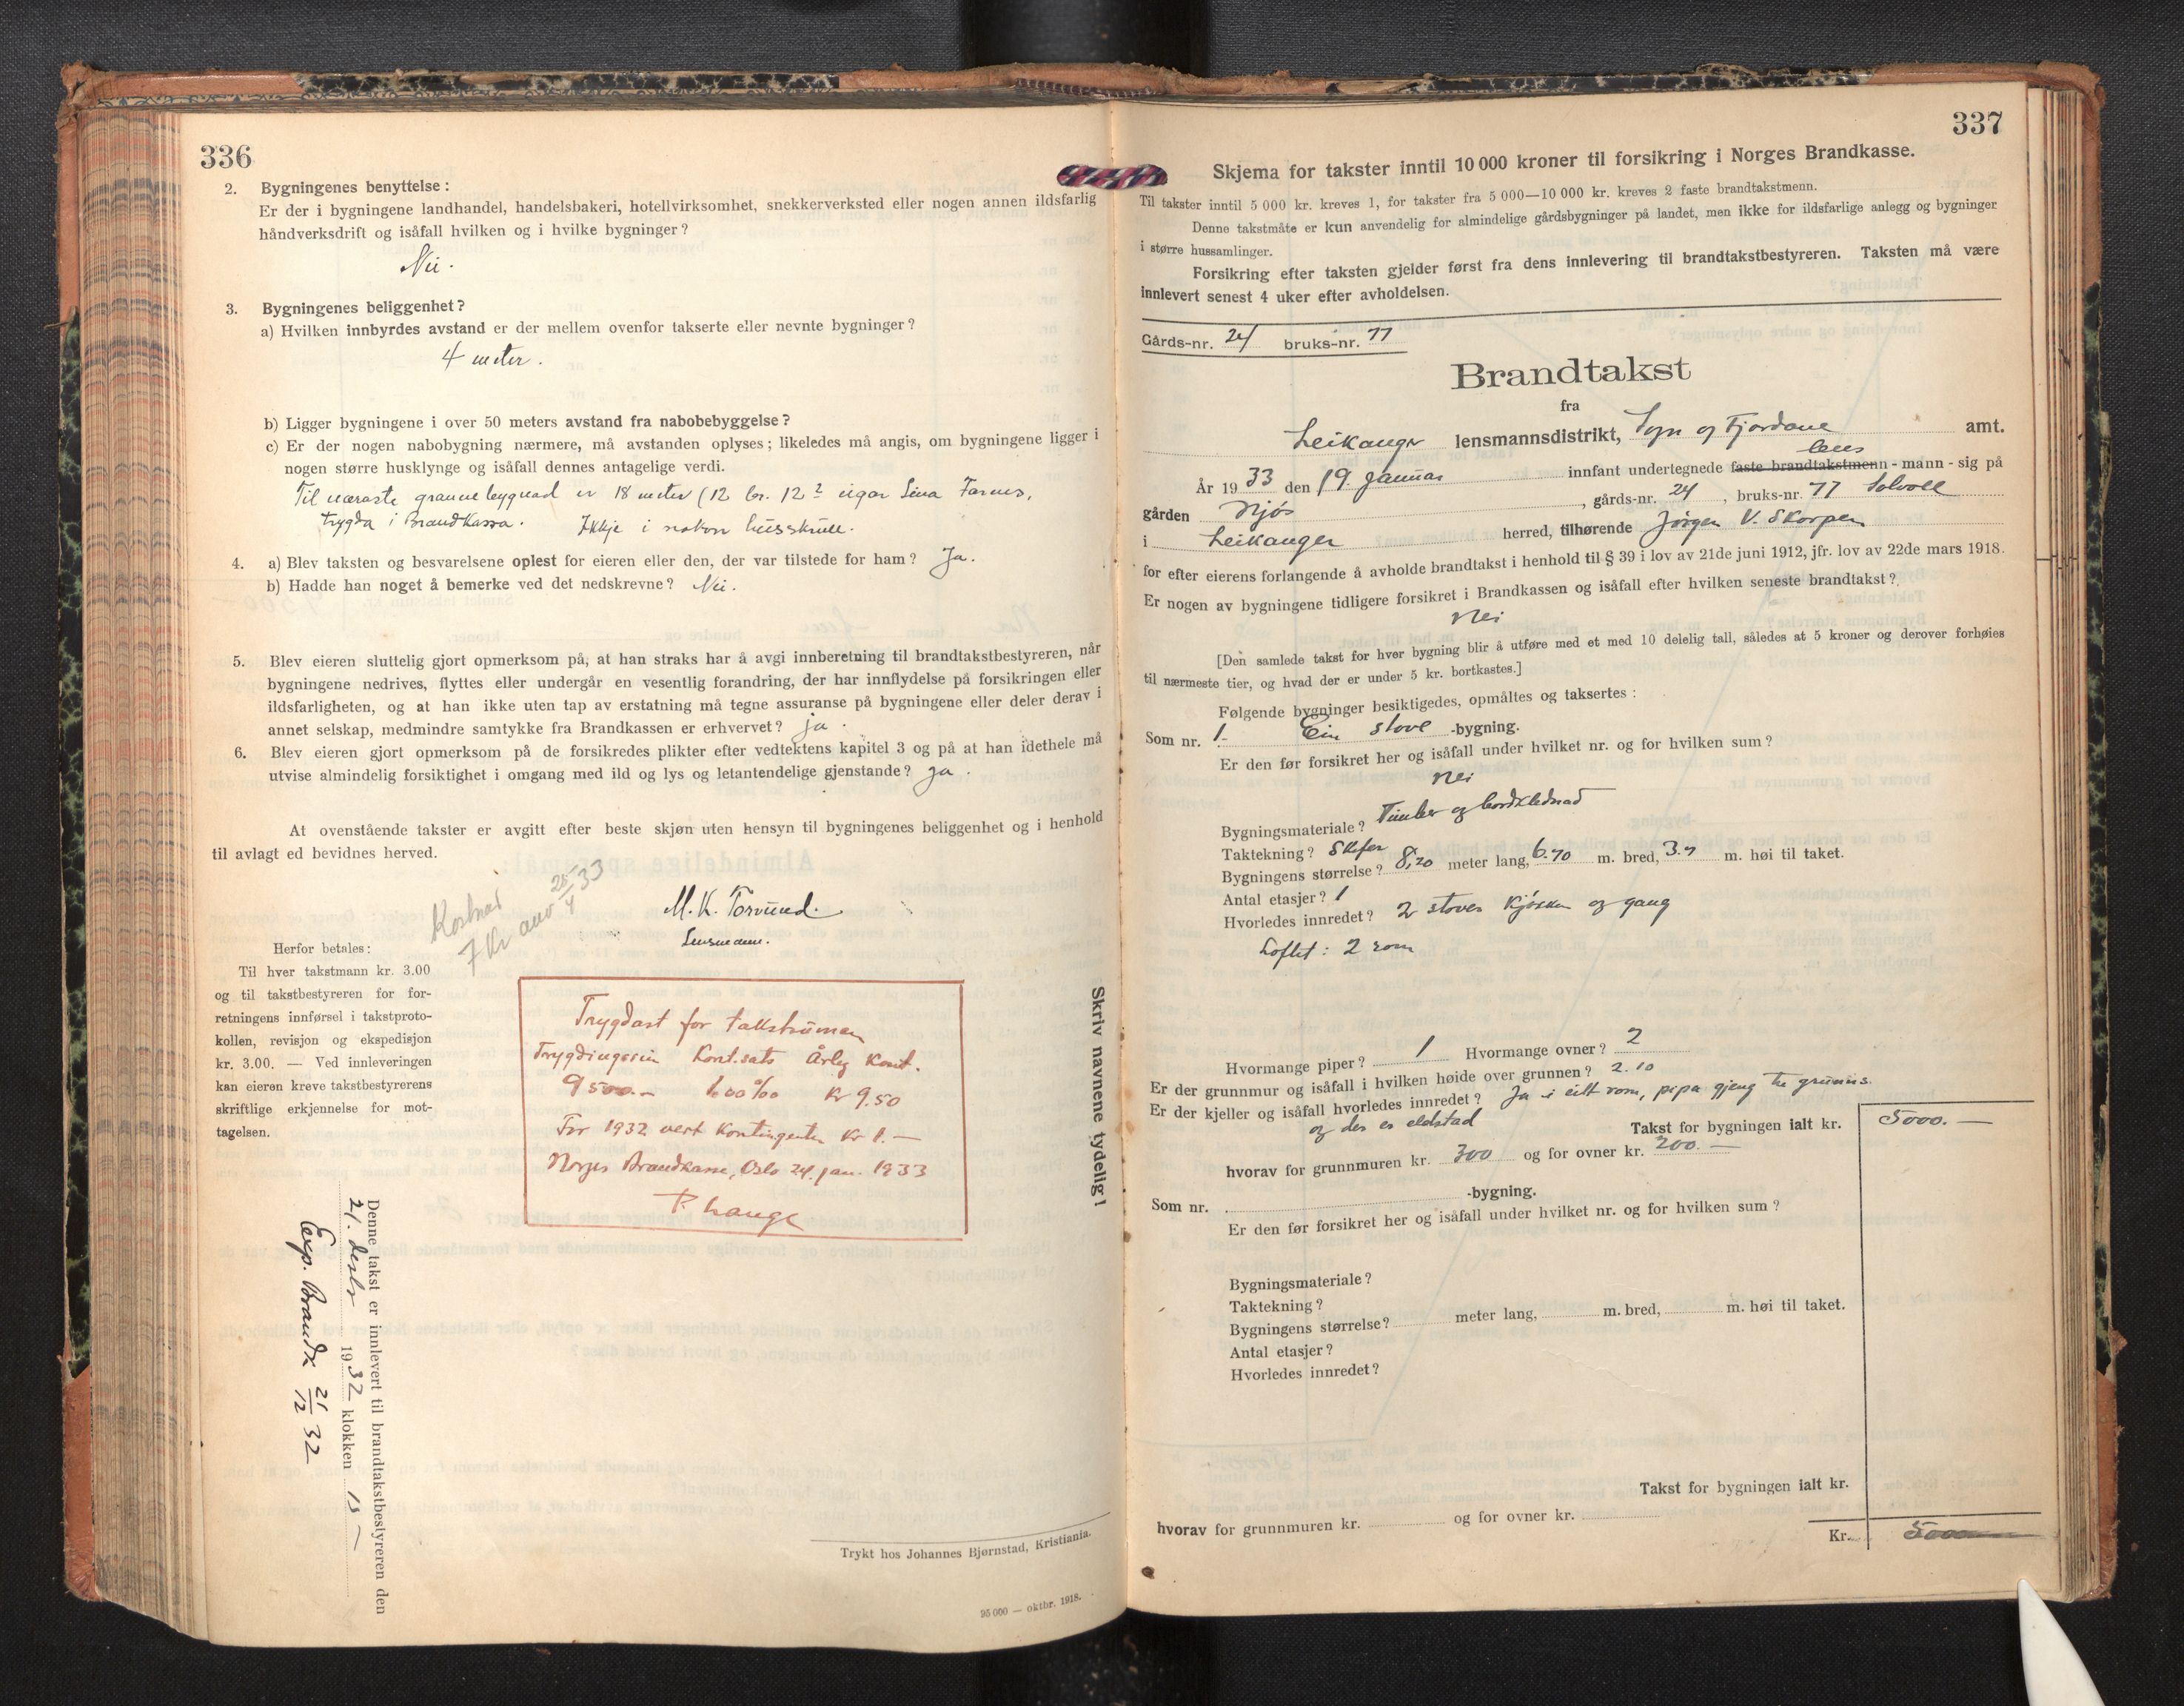 336
2. Bygningenes benyttelse:
Er der i bygningene landhandel, handelsbakeri, hotellvirksomhet, snekkerverksted eller nogen annen ildsfarlig
håndverksdrift og isåfall hvilken og i hvilke bygninger?
Nei.
3. Bygningenes beliggenhet?
a) Hvilken innbyrdes avstand er der mellem ovenfor takserte eller nevnte bygninger?
4 meter.
b) Ligger bygningene i over 50 meters avstand fra nabobebyggelse?
c) Er der nogen nabobygning nærmere, må avstanden oplyses; likeledes må angis, om bygningene ligger i
nogen større husklynge og isåfall dennes antagelige verdi.
Til næraste granne bygnad er 18 meter (12 br. 12? eigar Lina Farnes,
trygda i Brandkassa. Ikkje i nokon husskrull.
4. a) Blev taksten og besvarelsene oplest for eieren eller den, der var tilstede for ham? Ja.
b) Hadde han noget å bemerke ved det nedskrevne? Nei.
5. Blev eieren sluttelig gjort opmerksom på, at han straks har å avgi innberetning til brandtakstbestyreren, når
bygningene nedrives, flyttes eller undergår en vesentlig forandring, der har innflydelse på forsikringen eller
ildsfarligheten, og at han ikke uten tap av erstatning må tegne assuranse på bygningene eller deler derav i
annet selskap, medmindre samtykke fra Brandkassen er erhvervet? ja.
6. Blev eieren gjort opmerksom på de forsikredes plikter efter vedtektens kapitel 3 og på at han idethele må
utvise almindelig forsiktighet i omgang med ild og lys og letantendelige gjenstande? ja.
At ovenstående takster er avgitt efter beste skjøn uten hensyn til bygningenes beliggenhet og i henhold
til avlagt ed bevidnes herved.
Kostnad
7 Kr anv 25/4 33
M. K. Torvund.
Lensmann.
Herfor betales:
Til hver takstmann kr. 3.00
og til takstbestyreren for for-
retningens innførsel i takstproto-
kollen, revisjon og ekspedisjon
kr. 3.00. — Ved innleveringen
kan eieren kreve takstbestyrerens
skriftlige erkjennelse for mot-
tagelsen.
Trygdast for takstsumen
Trygdingssum Kont.sats Årleg Kont.
9500.- 1.00 ‰ Kr 9.50
For 1932 vert Kontingenten Kr 1.—
Norges Brandkasse, Oslo 24. jan. 1933
P. Lange
Denne takst er innlevert til brandtakstbestyreren den
21. desbr 1932 klokken 15 —
Exp. Brandk 21/12 32
Skriv navnene tydelig!
Trykt hos Johannes Bjørnstad, Kristiania.
25 000 — oktbr. 1918.
337
Skjema for takster inntil 10 000 kroner til forsikring i Norges Brandkasse.
Til takster inntil 5 000 kr. kreves 1, for takster fra 5 000—10 000 kr. kreves 2 faste brandtakstmenn.
Denne takstmåte er kun anvendelig for almindelige gårdsbygninger på landet, men ikke for ildsfarlige anlegg og bygninger
i større hussamlinger.
Forsikring efter taksten gjelder først fra dens innlevering til brandtakstbestyreren. Taksten må være
innlevert senest 4 uker efter avholdelsen.
Gårds-nr. 24 bruks-nr. 77
Brandtakst
fra
Leikanger lensmannsdistrikt, Sogn og Fjordane amt.
lens
År 1933 den 19. Januar innfant undertegnede faste brandtakstmenn - mann - sig på
gården Njøs, gårds-nr. 24, bruks-nr. 77 Solvoll
i Leikanger herred, tilhørende Jørgen V. Skorpen
for efter eierens forlangende å avholde brandtakst i henhold til § 39 i lov av 21de juni 1912, jfr. lov av 22de mars 1918.
Er nogen av bygningene tidligere forsikret i Brandkassen og isåfall efter hvilken seneste brandtakst?
Nei
[Den samlede takst for hver bygning blir å utføre med et med 10 delelig tall, således at 5 kroner og derover forhøies
til nærmeste tier, og hvad der er under 5 kr. bortkastes.]
Følgende bygninger besiktigedes, opmåltes og taksertes:
Som nr. 1. Ein stove -bygning.
Er den før forsikret her og isåfall under hvilket nr. og for hvilken sum?
Nei
Bygningsmateriale? Timber og bordklednad
Taktekning? Skifer
Bygningens størrelse? 8,20 meter lang, 6.70 m. bred, 3.7 m. høi til taket.
Antal etasjer? 1
Hvorledes innredet? 2 stover kjøken og gang
Loftet: 2 rom
Hvormange piper? 1 Hvormange ovner? 2
Er der grunnmur og isåfall i hvilken høide over grunnen? 2.10
Er der kjeller og isåfall hvorledes innredet? Ja i eitt rom, pipa gjeng til grunns.
og der er eldstad
Takst for bygningen ialt kr. 5000.—
hvorav for grunnmuren kr. 300 og for ovner kr. 200.—
Som nr. -bygning.
Er den før forsikret her og isåfall under hvilket nr. og for hvilken sum?
Bygningsmateriale?
Taktekning?
Bygningens størrelse? meter lang, m. bred, m. høi til taket.
Antal etasjer?
Hvorledes innredet?
Takst for bygningen ialt kr.
hvorav for grunnmuren kr. og for ovner kr.
Kr. 5000